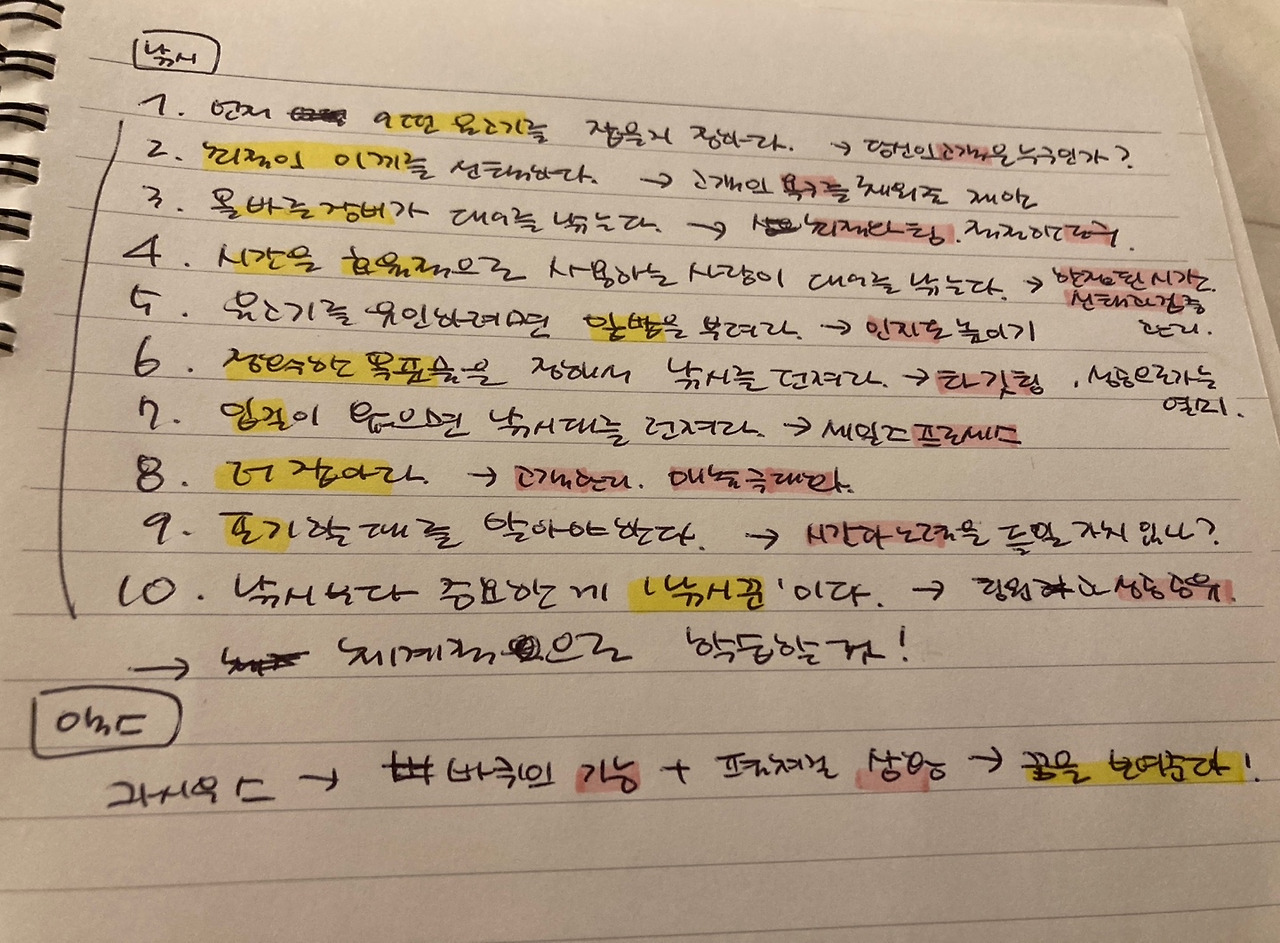 낚시
1. 먼저 어떤 물고기를 잡을지 정하라. → 당신의 고객은 누구인가?
2. 최적의 미끼를 선택하라. → 고객의 욕구를 채워줄 제안
3. 올바른 장비가 대어를 낚는다. → 최적한 팀. 적절한 도구.
4. 시간을 효율적으로 사용하는 사람이 대어를 낚는다. → 한정된 시간.
선택과 집중
관리.
5. 물고기를 유인하려면 밑밥을 뿌려라. → 인지도 높이기
6. 정확한 목표물을 정해서 낚시를 던져라. → 타깃팅, 성공으로 가는
열쇠.
7. 입질이 없으면 낚시대를 던져라. → 세일즈 프로세스
8. 더 잡아라. → 고객관리. 매출 극대화.
9. 포기할 때를 알아야 한다. → 시간과 노력을 들일 가치 있나?
10. 낚시보다 중요한 게 '낚시꾼'이다. → 팀원 성공 공유.
→ 체계적으로 학습할 것!
→ 바퀴의 기능 + 상용 → 꿈을 보여준다!